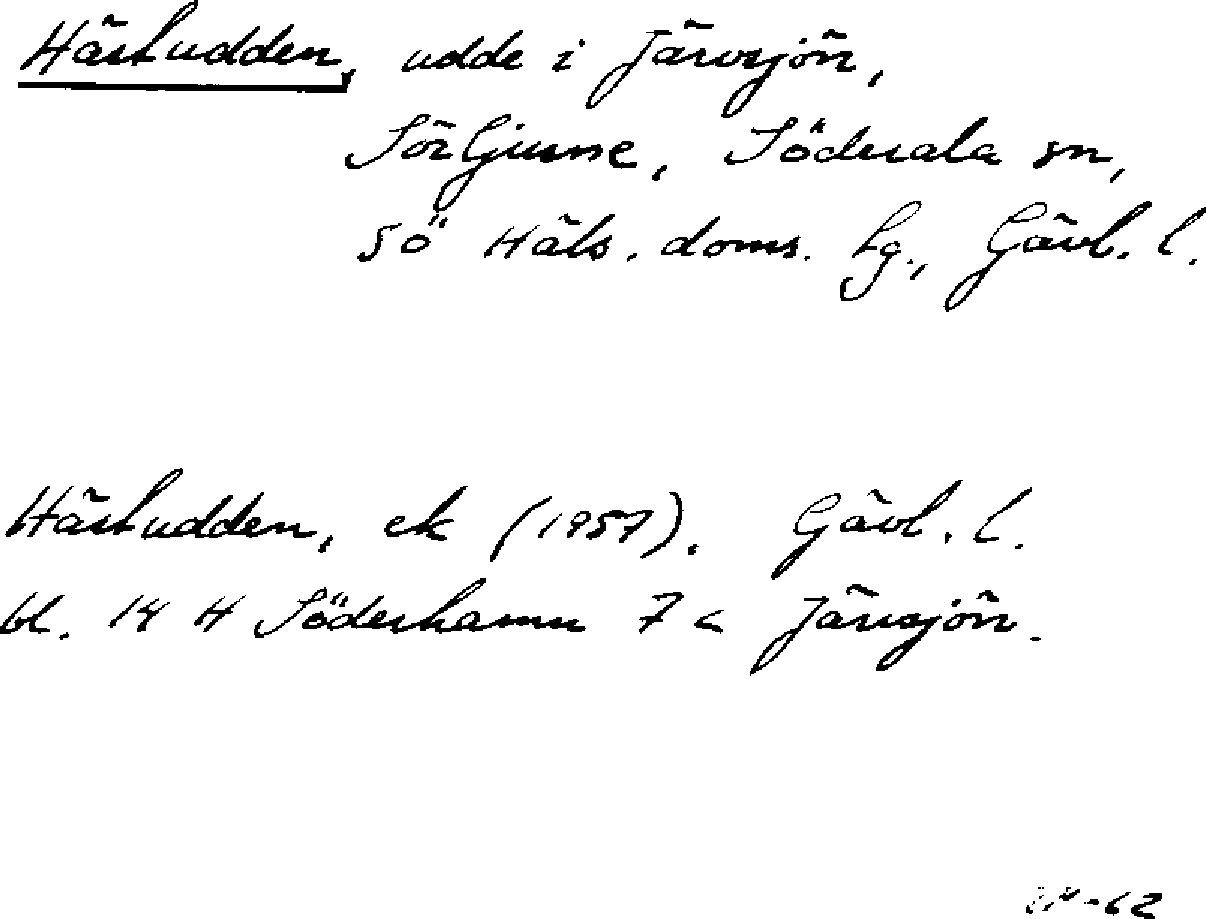 Hästudden, udde i Järvsjön,
Sörljusne, Söderala sn,
SÖ Häls. doms. hg., Gävl. l.
Hästudden, ek (1957). Gävl. l.
bl. 14 H Söderhamn 7 c Järvsjön.
-62